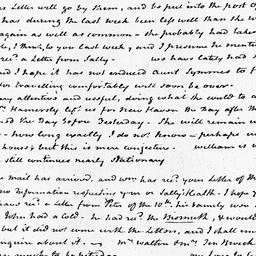 s letter will go by them, and be put into the post of
has during the last week been less well than she w
again as well as common - she probably had taken
le, I think, to you last week, and I presume he mentio
rec'd a letter from Sally - we have lately had
and I hope it has not induced aunt Symmes to
travelling comfortably will soon be over.
ry attentive and useful, doing what she could to
Hammond left us for New Haven the Day after the
ed the Day before Yesterday - She will remain
- how long exactly I do not know - perhaps
house; but this is mere conjecture. William is
still continues nearly stationary
e mail has arrived, and Wm has rec'd your letter of the
no information respecting you or Sally's Health - I hope
have rec'd a letter from Peter of the 10th, his family were
John had a cold - he had rec'd the Bismuth, & would
but it did not come with the letters, and I shall
enquire about it - Mr Walton & Mr Jen